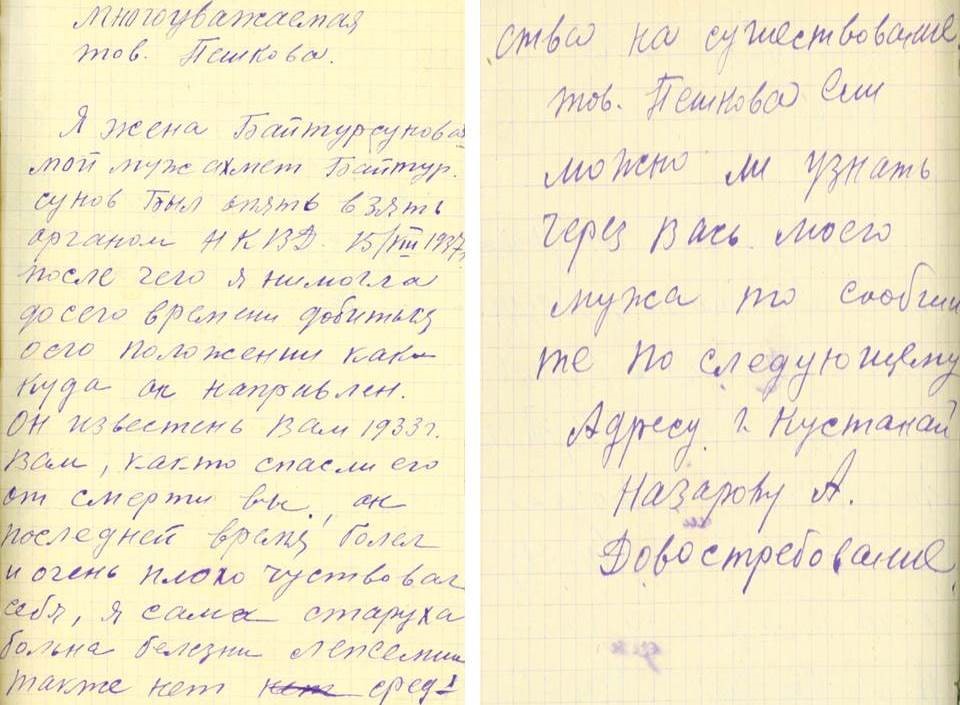 многоуважаемая
тов. Пешкова.
Я жена Байтурсунова
мой муж ахмет Байтур.
сунов был опять взять
органом НКВД. 15/VIII 1937,
после чего я нимогла
до сего времени добиться
оего положении как
куда он направлен.
Он известень Вам 1933 г.
Вам, как то спасли его
от смерти вы, он
последней время болел
и очень плохо чуствовал
себя, я сама старуха
больна
также нет сред-
ства на существование.
тов. Пешкова Если
можно ли узнать
через Вась моего
мужа то сообщи
те по следующему
Адресу г. Кустанай
Назарову А.
Довостребование.